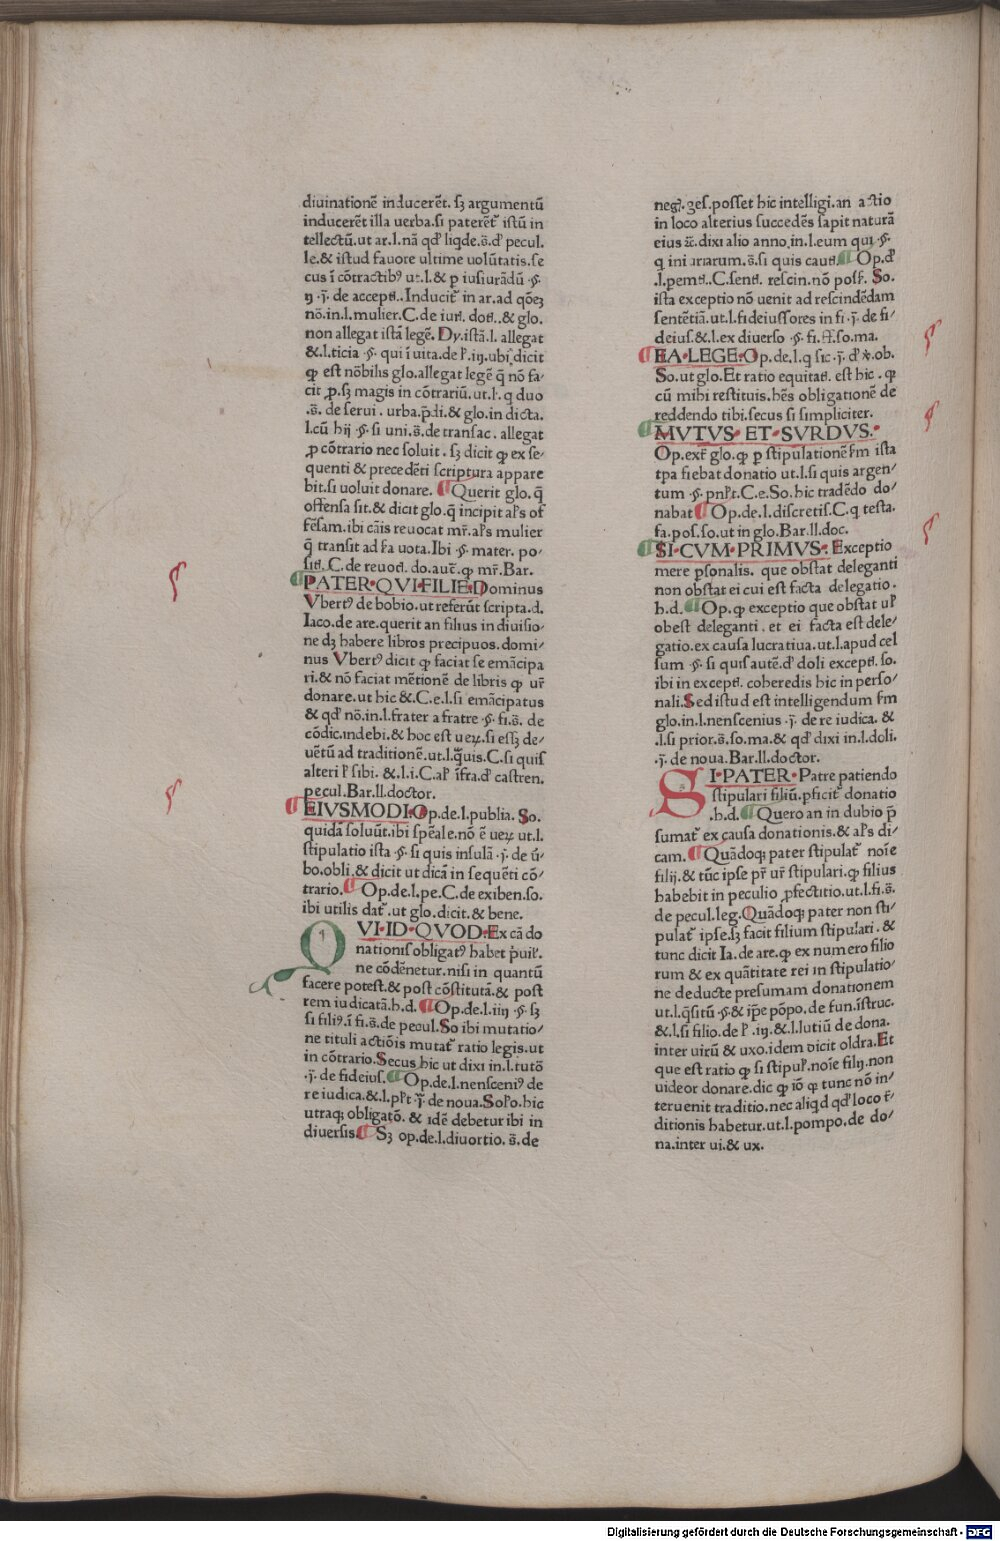 diuinationē inducerēt. sꝫ argumentū
inducerēt illa uerba. si paterēt᷑ istū in
tellectū. ut ar. l. nā qd̓ liqde. s̄. d̓ pecul.
le. & istud fauore ultime uolūtatis. se
cus ī cōtractibꝰ ut. l. & p iusiurādū .§.
ij .j̄. de accepti. Inducit᷑ in ar. ad qōeꝫ
nō. in. l. mulier. C. de iuri. doti. & glo.
non allegat istā legē. Dy. istā. l. allegat
&. l. ticia .§. qui ī uita. de l̓. iij. ubi dicit
ꝙ est nōbilis glo. allegat legē q̄ nō fa⸗
cit ꝓ. sꝫ magis in cōtrariū. ut. l̓. q duo
.s̄. de serui. urba. p̄di. & glo. in dicta.
l. cū hij .§. si uni. s̄. de transac. allegat
ꝓ cōtrario nec soluit. sꝫ dicit ꝙ ex se⸗
quenti & precedēti scriptura appare
bit. si uoluit donare. Querit glo. q̄
offensa sit. & dicit glo. q̄ incipit al̓s of
fēsam. ibi cāis reuocat mr̄. al̓s mulier
q̄ transit ad ſa uota. Ibi .§. mater. po⸗
siti. C. de reuoti. do. auē. ꝙ mr̄. Bar.
PATER QVI FILIE. Dominus
Vbertꝰ de bobio. ut referūt scripta. d.
Iaco. de are. querit an filius in diuisio⸗
ne dꝫ habere libros precipuos. domi⸗
nus Vbertꝰ dicit ꝙ faciat se emācipa
ri. & nō faciat mētionē de libris ꝙ ur̄
donare. ut hic &. C. e. l. si emācipatus
& qd̓ nō. in. l. frater a fratre .§. fi. s̄. de
cōdic. indebi. & hoc est ueꝝ. si essꝫ de⸗
uētū ad traditionē. ut. l. q̄uis. C. si quis
alteri l̓ sibi. &. l. i. C. al̓ īfra. d̓ castren.
pecul. Bar. ll. doctor.
EIVSMODI. Op. de. l. publia. So.
quidā soluūt. ibi spēale. nō ē ueꝝ ut. l.
stipulatio ista .§. si quis insulā .j̄. de ū⸗
bo. obli. & dicit ut dicā in sequēti cō⸗
trario. Op. de. l. pe. C. de exiben. so.
ibi utilis dat᷑. ut glo. dicit. & bene.
QVI ID QVOD. Ex cā do
nationis obligatꝰ habet p̄uil̓.
ne cōdēnetur. nisi in quantū
facere potest. & post cōstitutā. & post
rem iudicatā. h. d. Op. de. l. iiij .§. sꝫ
si filiꝰ. ī fi. s̄. de pecul. So ibi mutatio⸗
ne tituli actiōis mutat᷑ ratio legis. ut
in cōtrario. Secus hic ut dixi in. l. tutō
.j̄. de fideius. Op. de. l. nensceniꝰ de
re iudica. &. l. pl̓t j̄. de noua. Sol̓o. hic
utraqꝫ obligatō. & idē debetur ibi in
diuersis Sꝫ op. de. l. diuortio. s̄. de
neg̓. ges. posset hic intelligi. an actio
in loco alterius succedēs sapit naturā
eius &c̄. dixi alio anno. in. l. eum qui .§.
q iniariarum. s̄. si quis cauti. Op. d̓
.l. pemti. C. senti. rescin. nō poss̓. So.
ista exceptio nō uenit ad rescindēdam
sentētiā. ut. l. fideiussores in fi .j̄. de fi⸗
deius. &. l. ex diuerso .§. fi. ff. so. ma.
EA LEGE. Op. de. l. q sic .j̄. d̓ v̓. ob.
So. ut glo. Et ratio equitati. est hic. ꝙ
cū mihi restituis. hēs obligationē de
reddendo tibi. secus si simpliciter.
MVTVS ET SVRDVS.
Op. ext̓ glo. ꝙ p stipulationē ẜm ista
tpa fiebat donatio ut. l. si quis argen⸗
tum .§. pn̄lt. C. e. So. hic tradēdo do⸗
nabat Op. de. l. discretis. C. q testa.
fa. pos. so. ut in glo. Bar. ll. doc.
SI CVM PRIMVS. Exceptio
mere psonalis. que obstat deleganti
non obstat ei cui est facta delegatio.
h. d. Op. ꝙ exceptio que obstat ul̓
obest deleganti. et ei facta est dele⸗
gatio. ex causa lucratiua. ut. l. apud cel
sum .§. si quis autē. d̓ doli excepti. so.
ibi in excepti. coheredis hic in perso⸗
nali. Sed istud est intelligendum ẜm
glo. in. l. nenscenius .j̄. de re iudica. &
.l. si prior. s̄. so. ma. & qd̓ dixi in. l. doli.
.j̄. de noua. Bar. ll. doctor.
SI PATER. Patre patiendo
stipulari filiū. ꝑficit᷑ donatio
.h. d. Quero an in dubio p̄
sumat᷑ ex causa donationis. & al̓s di⸗
cam. Quādoqꝫ pater stipulat᷑ noīe
filij. & tūc ipse pr̄ ur̄ stipulari. ꝙ filius
habebit in peculio ꝓfectitio. ut. l. fi. s̄.
de pecul. leg. Quādoqꝫ pater non sti⸗
pulat᷑ ipse. sꝫ facit filium stipulari. &
tunc dicit Ia. de are. ꝙ ex numero filio
rum & ex quātitate rei in stipulatio⸗
ne deducte presumam donationem
ut. l. q̄sitū .§. & ip̄e pōpo. de fun. īstruc.
&. l. si filio. de l̓ .iij. &. l. lutiū de dona.
inter uirū & uxo. idem dicit oldra. Et
que est ratio ꝙ si stipul̓. noīe filij. non
uideor donare. dic ꝙ iō ꝙ tunc nō in⸗
teruenit traditio. nec aliqd qd̓ loco t̓⸗
ditionis habetur. ut. l. pompo. de do⸗
na. inter ui. & ux.
Digitalisierung gefördert durch die Deutsche Forschungsgemeinschaft - DFG